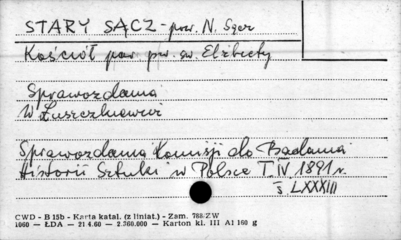 STARY SĄCZ - pow. N. Sącz
Kościół par. pw. św. Elżbiety
Sprawozdania
W Łuszczkiewicz
Sprawozdania Komisji do Badania
Historii Sztuki w Polsce T. IV 1891 r.
s LXXXIII
CWD - B 15b - Karta katal. (z liniat.) - Zam. 768/ZW
1060 — ŁDA — 21 4.60 — 2.760.000 — Karton kl. III A1 160 g